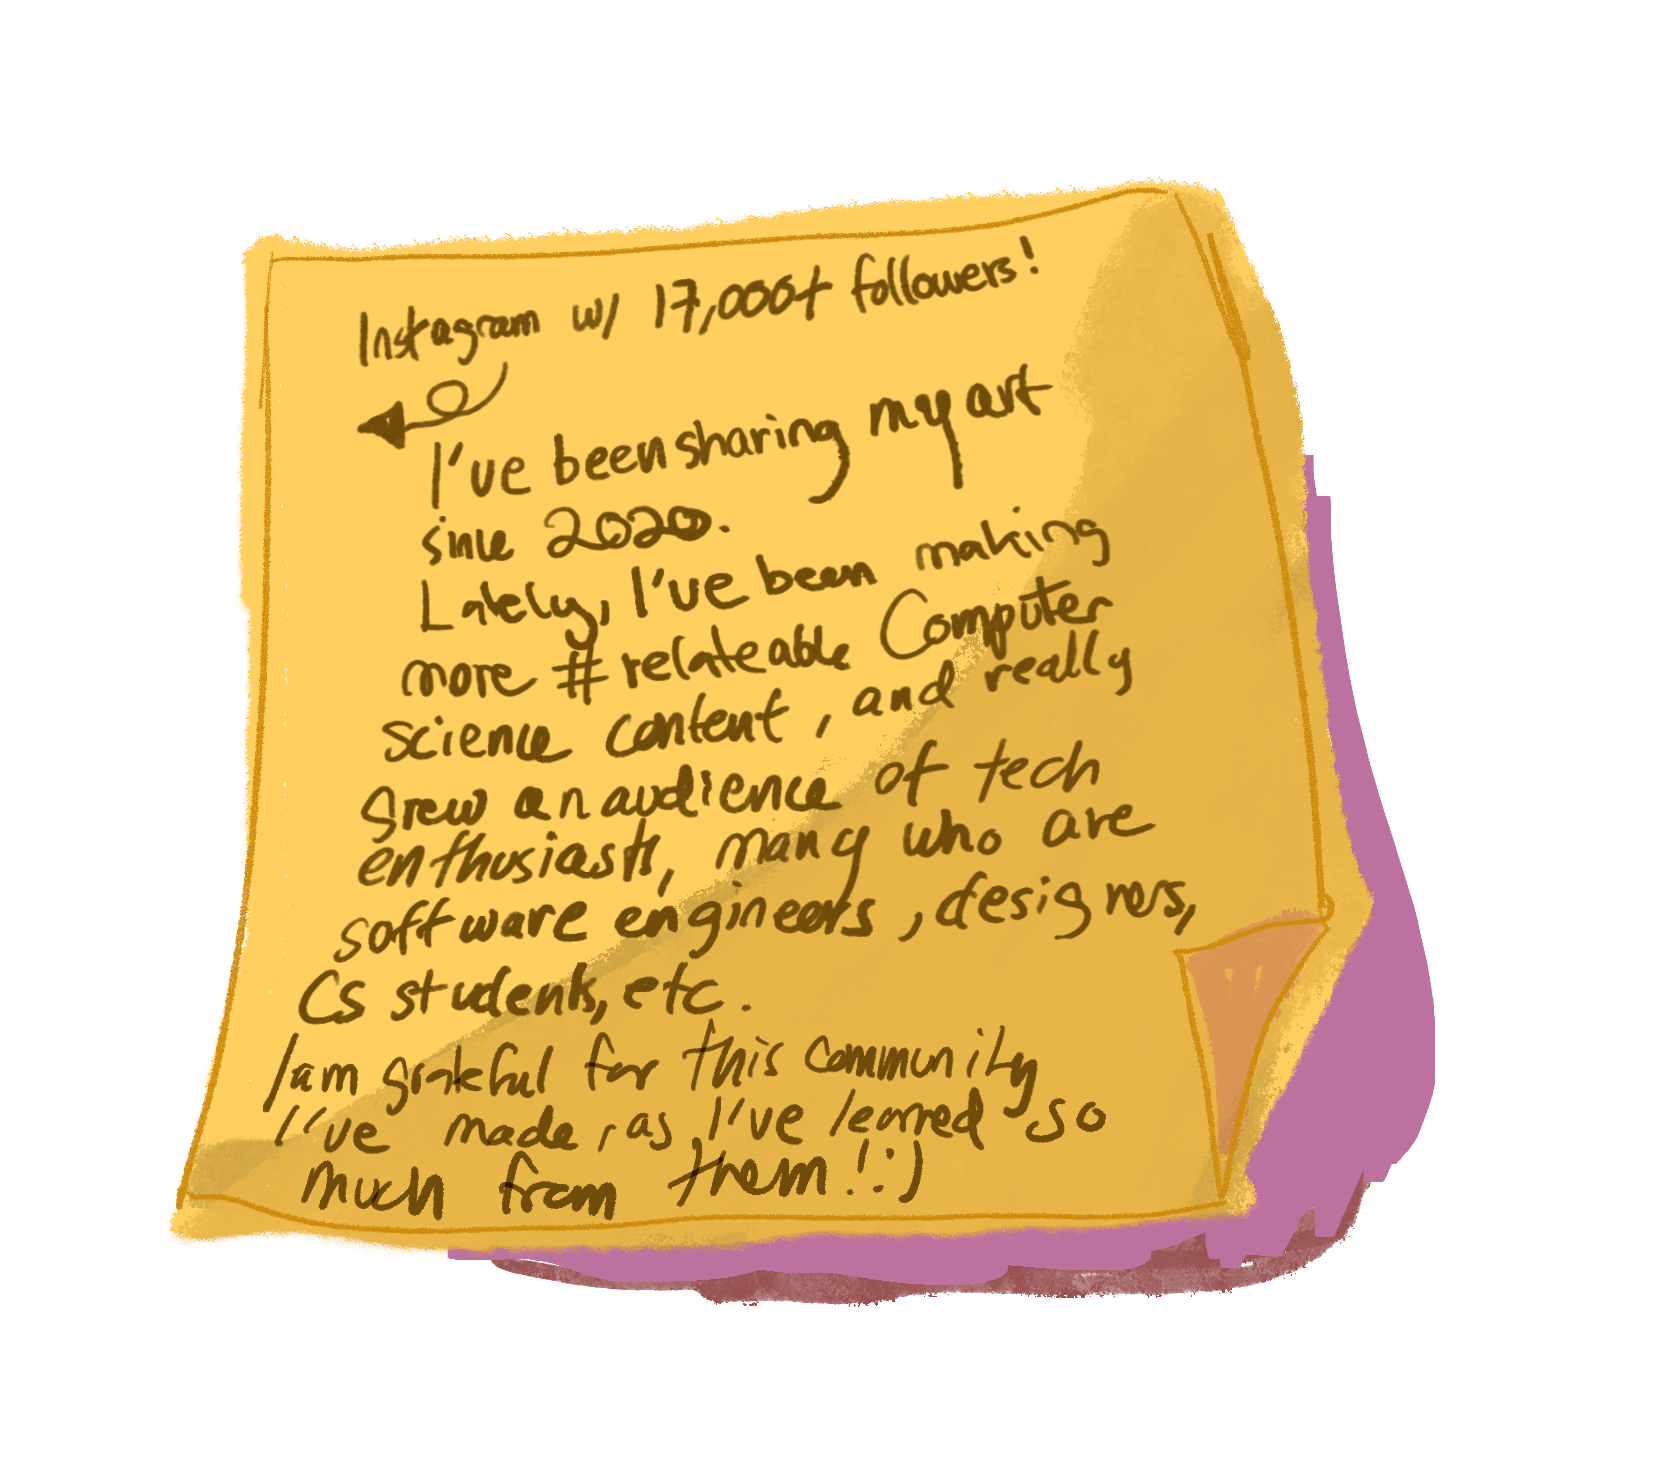 Instagram w/ 17,000+ followers!
I've been sharing my art
since 2020.
Lately, I've been making
more #relateable Computer
science content, and really
grew an audience of tech
enthusiasts, many who are
software engineers, designers,
CS students, etc.
I am grateful for this community
I've made, as I've learned so
much from them! :)